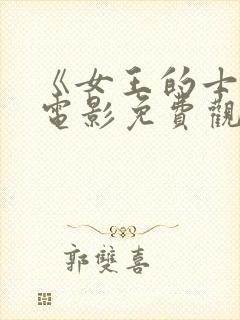 《女王的士
電影免費觀
郭雙喜